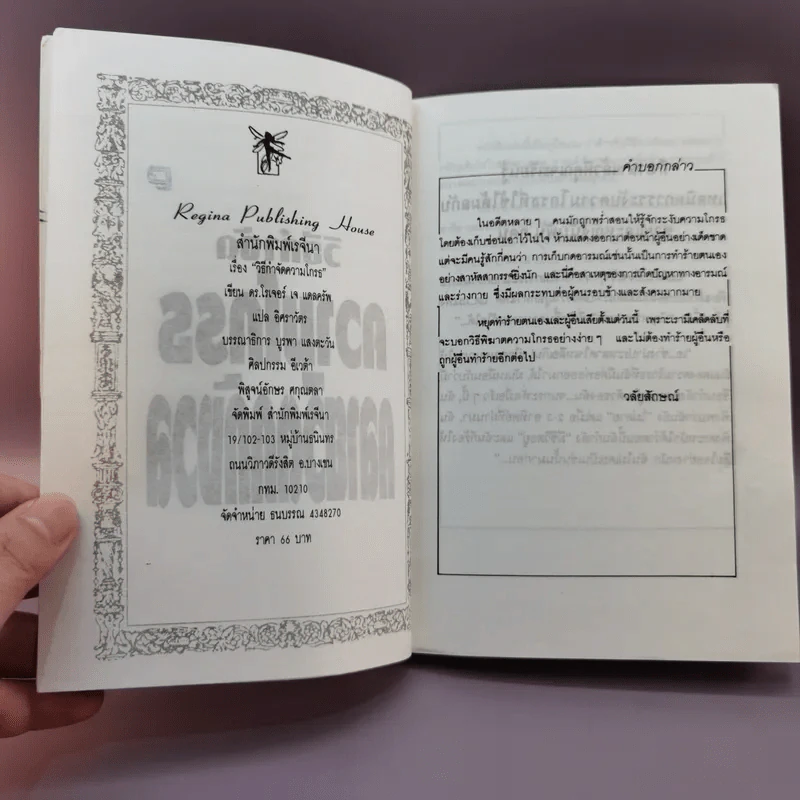 Regina Publishing House
สำนักพิมพ์เรจีนา
เรื่อง "วิธีกำจัดความโกรธ"
เขียน ดร.โรเจอร์ เจ แดลครัพ
แปล อิศราวัตร
บรรณาธิการ บูรพา แสงตะวัน
ศิลปกรรม อีเวต้า
พิสูจน์อักษร ศกุณตลา
จัดพิมพ์ สำนักพิมพ์เรจีนา
19/102-103 หมู่บ้านธนินทร
ถนนวิภาวดีรังสิต อ.บางเขน
กทม. 10210
จัดจำหน่าย ธนบรรณ 4348270
ราคา 66 บาท
คำบอกกล่าว
ในอดีตหลายๆ คนมักถูกพร่ำสอนให้รู้จักระงับความโกรธ
โดยต้องเก็บซ่อนเอาไว้ในใจ ห้ามแสดงออกมาต่อหน้าผู้อื่นอย่างเด็ดขาด
แต่จะมีคนรู้สักกี่คนว่า การเก็บกดอารมณ์เช่นนั้นเป็นการทำร้ายตนเอง
อย่างสาหัสสากรรจ์ยิ่งนัก และนี่คือสาเหตุของการเกิดปัญหาทางอารมณ์
และร่างกาย ซึ่งมีผลกระทบต่อผู้คนรอบข้างและสังคมมากมาย
หยุดทำร้ายตนเองและผู้อื่นเสียตั้งแต่วันนี้ เพราะเรามีเคล็ดลับที่
จะบอกวิธีพิฆาตความโกรธอย่างง่ายๆ และไม่ต้องทำร้ายผู้อื่นหรือ
ถูกผู้อื่นทำร้ายอีกต่อไป
วลัยลักษณ์